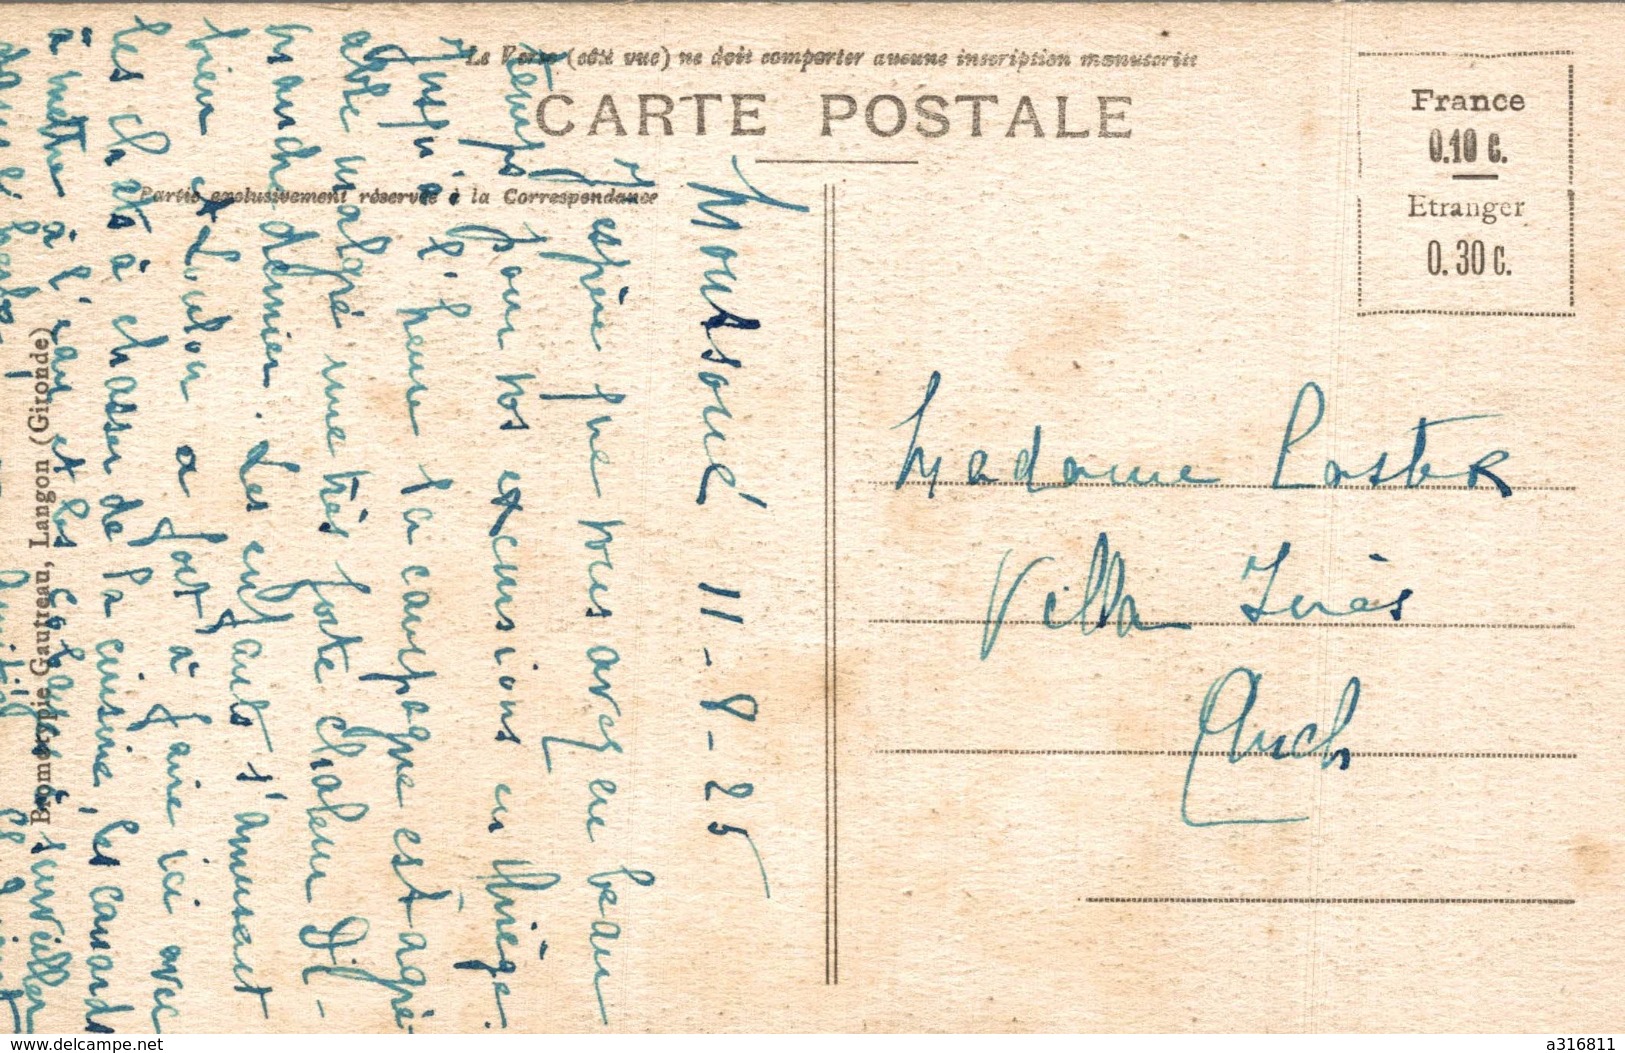 Le Verso (côté vue) ne doit comporter aucune inscription manuscrite
CARTE POSTALE
Partie exclusivement réservée à la Correspondance
France
0.10 c.
Etranger
0.30 c.
Bromotypie Gautreau, Langon (Gironde)
11-8-25
J'espère que vous avez eu beau
temps pour vos excursions en Ariège.
Jusqu'à l'heure la campagne est agré-
able malgré une très forte chaleur Di-
manche dernier. Les enfants s'amusent
bien et Loulou a fort à faire ici avec
les chats à chasser de la cuisine, les canards
à mettre à l'eau et les à surveiller
Madame
Villa Inès
Auch
delcampe.net
a316811